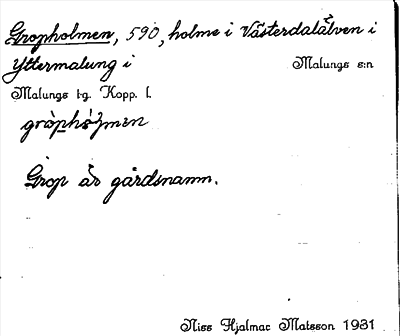 Gropholmen, 590, holme i Västerdalälven i
Yttermalung i Malungs s:n
Malungs tg. Kopp. l.
Grop är gårdsnamn.
Niss Hjalmar Matsson 1931